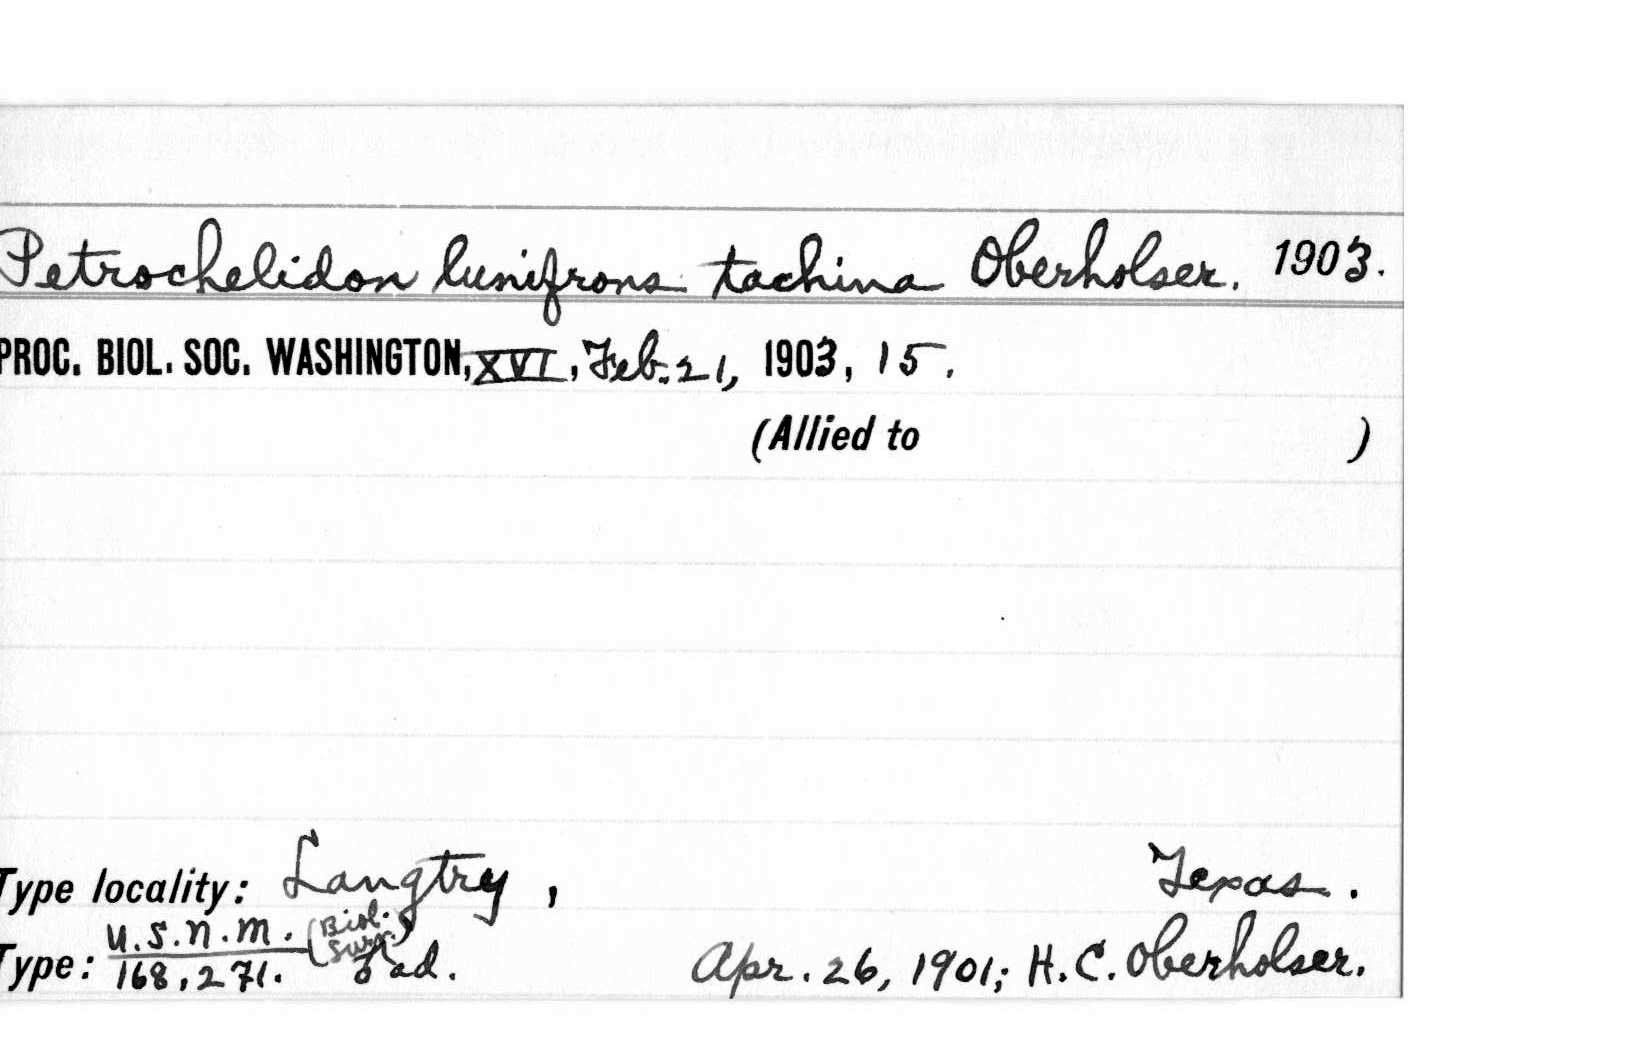 Petrochelidon lunifrons tachina Oberholser. 1903.
PROC. BIOL. SOC. WASHINGTON, XVI, Feb. 21, 1903, 15.
(Allied to )
Type locality: Langtry, Texas.
U.S.N.M. (Biol. Surv.)
Type: 168,271. ad. Apr. 26, 1901; H.C. Oberholser.